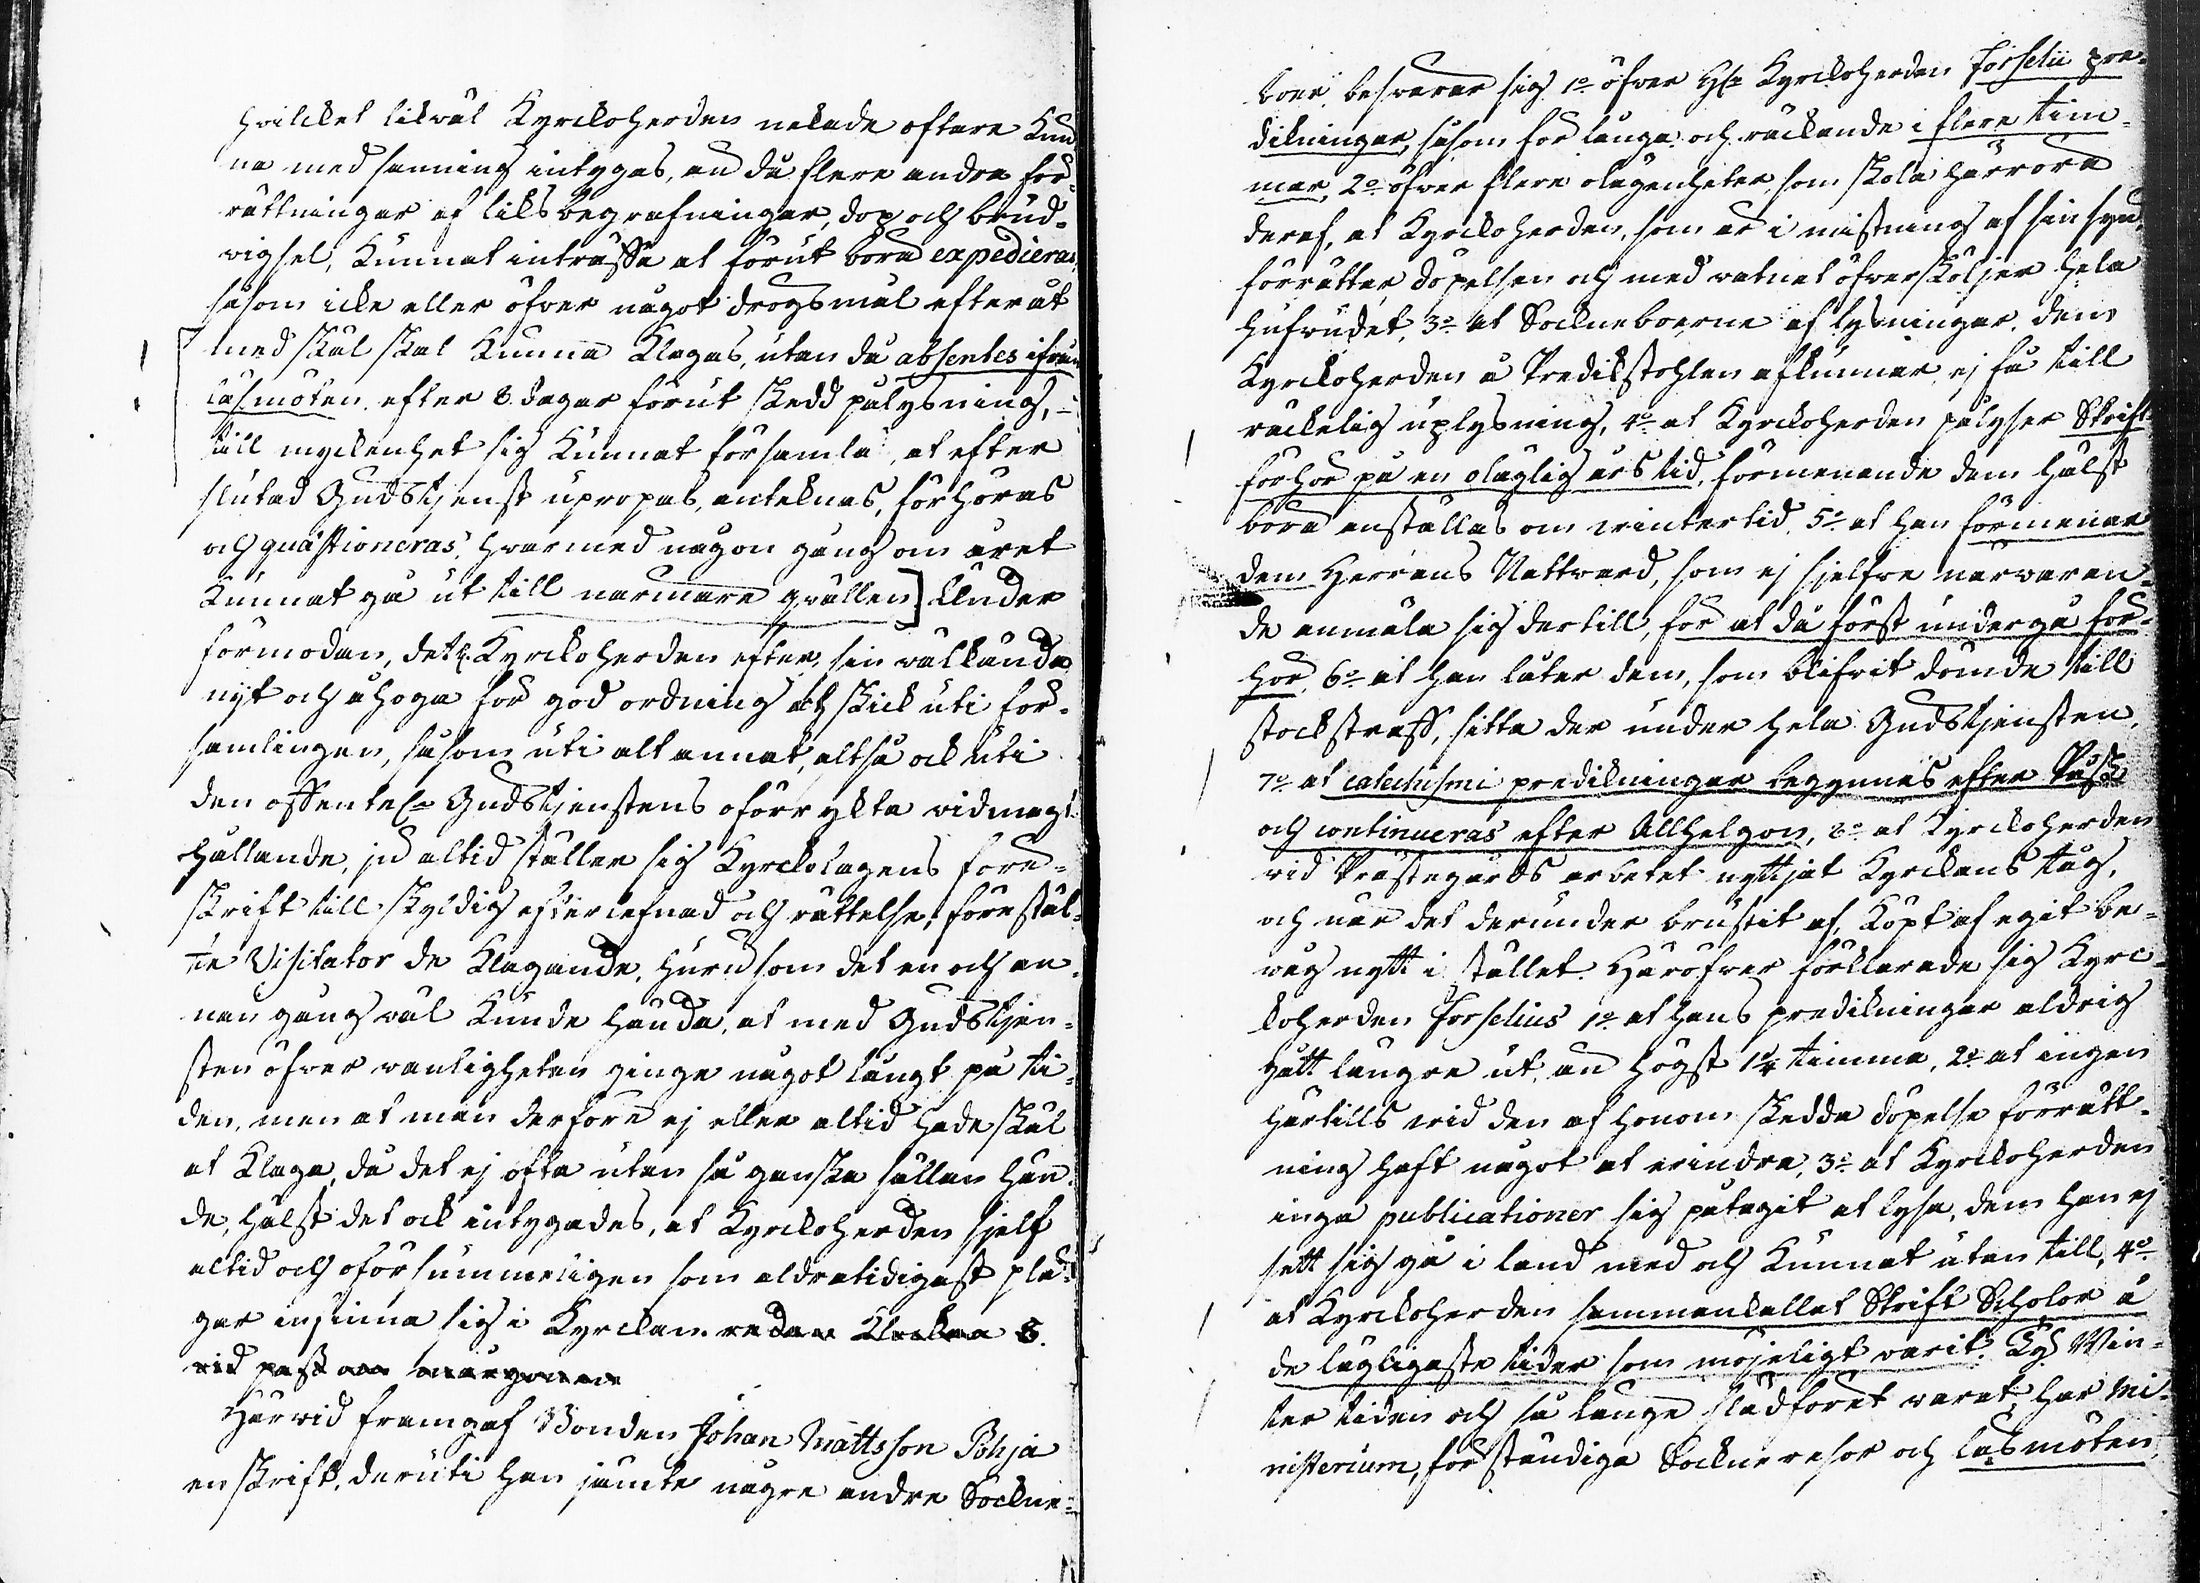 hvilcket likväl Kyrckoherden nekade oftare Kun
na med sanning intygas, än då flere andra för-
rättningar af liksbegrafningar, dop och brud-
vigsel, Kunnat inträffa at förut böra expedieras,
såsom icke eller öfver något drögsmål efteråt
med skäl skal Kunna Klagas, utan då absentes ifrån
läsmöten efter 8 dagar förut skedd pålysning,
till myckenhet sig Kunnat församla, at efter
slutad Gudstjenst upropas, anteknas, förhöras
och quæstioneras, hvarmed någon gång om året
Kunnat gå ut till närmare qvällen] Under
förmodan, det H. Kyrckoherden efter sin välkända
nijt och åhoga för god ordning och skick uti för-
samlingen, såsom uti alt annat, altså ock uti
den offentel. Gudstjenstens oförrykta vidmagt-
hållande, jú altid ställer sig Kyrckolagens före-
skrift till skyldig efterlefnad och rättelse; förestäl-
te Visitator de Klagande, huru som det en och an-
nan gång väl Kunde hända, at med Gudstjen-
sten öfver vanligheten ginge något långt på ti-
den, men at man derföre ej eller altid hade skäl
at Klaga, då det ej ofta utan så ganska sällan hän-
de, hälst det ock intygades, at Kyrckoherden sjelf
altid och oförsummeligen som aldratidigast plä-
gar infinna sig i Kyrckan redan Klockan 8.
vid pass om morgonen
Härvid framgaf Bonden Johan Mattsson Pohja
en skrift, deruti han jämte någre andre Sockne-
boer besvärar sig 1o öfver Hr Kyrckoherden Forselii pre-
dikningar, såsom för långa och räckande i flere tim-
mar, 2o öfver flere olägenheter, som skola härröra
deraf, at Kyrckoherden, som är i mistning af sin syn,
förrättar döpelsen och med vatnet öfversköljer hela
hufvudet, 3o at Sockneboerne af lysningar, dem
Kyrckoherden å Predikstohlen afkunnar, ej få till
räckelig uplysning, 4o at Kyrckoherden pålyser Skrift
förhör på en olaglig årstid, förmenande dem hälst
böra anställas om vintertid, 5o at han förmenar
dem Herrans Nattvard, som ej sjelfve närvaran-
de anmäla sig dertill, för at då först undergå för-
hör, 6o at han låter dem, som blifvit dömde till
stockstraff, sitta der under hela Gudstjensten,
7o at catechismi predikningar begynnes efter Påsk
och continueras efter Allhelgon, 8o at Kyrckoherden
vid Prästegårds arbetet nyttjat Kyrckans tåg,
och när det derunder brustit af, Köpt af egit be-
råg nytt i stället. Häröfver förklarade sig Kyrc-
koherden Forselius 1o at hans predikningar aldrig
gått längre ut, än högst 1 1/4 timma, 2o at ingen
härtills vid den af honom skedda döpelse förrätt-
ning haft något at erindra, 3o at Kyrckoherden
inga publicationer sig påtagit at lysa, dem han ej
sett sig gå i land med och Kunnat utan till, 4o
at Kyrckoherden sammankallat Skrift Scholor å
de lägligaste tider som möjeligt varit. Ty Vin-
ter tiden och så länge slädföret varat, har mi-
nisterium, för ständiga Sockneresor och läsmöten,